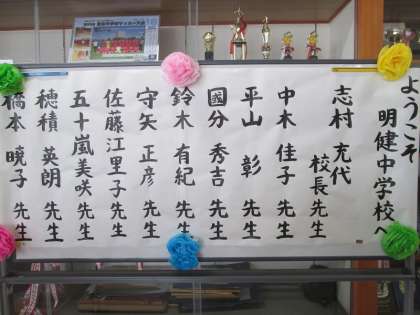 ようこそ
明健中学校へ
志村 克代
校長先生
中木 佳子 先生
平山 彰 先生
國分 秀吉 先生
鈴木 有紀 先生
守矢 正彦 先生
佐藤江里子 先生
五十嵐美咲 先生
穂積 英朗 先生
橋本 暁子 先生